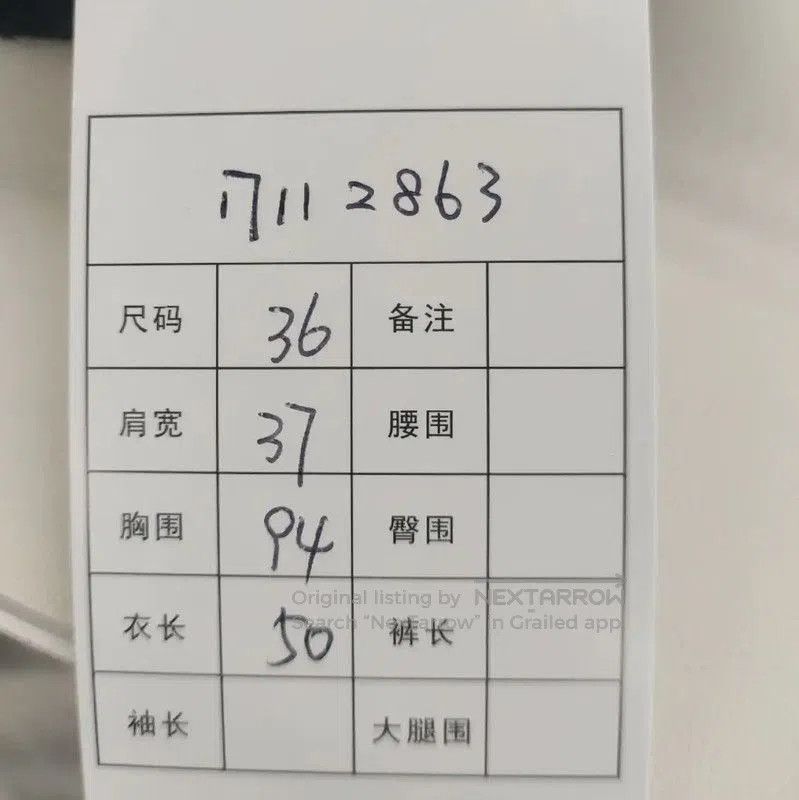 17112863
尺码 36 备注
肩宽 37 腰围
胸围 94 臀围
Original listing by NEXTARROW
Search "NextArrow" in Grailed app
衣长 50 裤长
袖长 大腿围